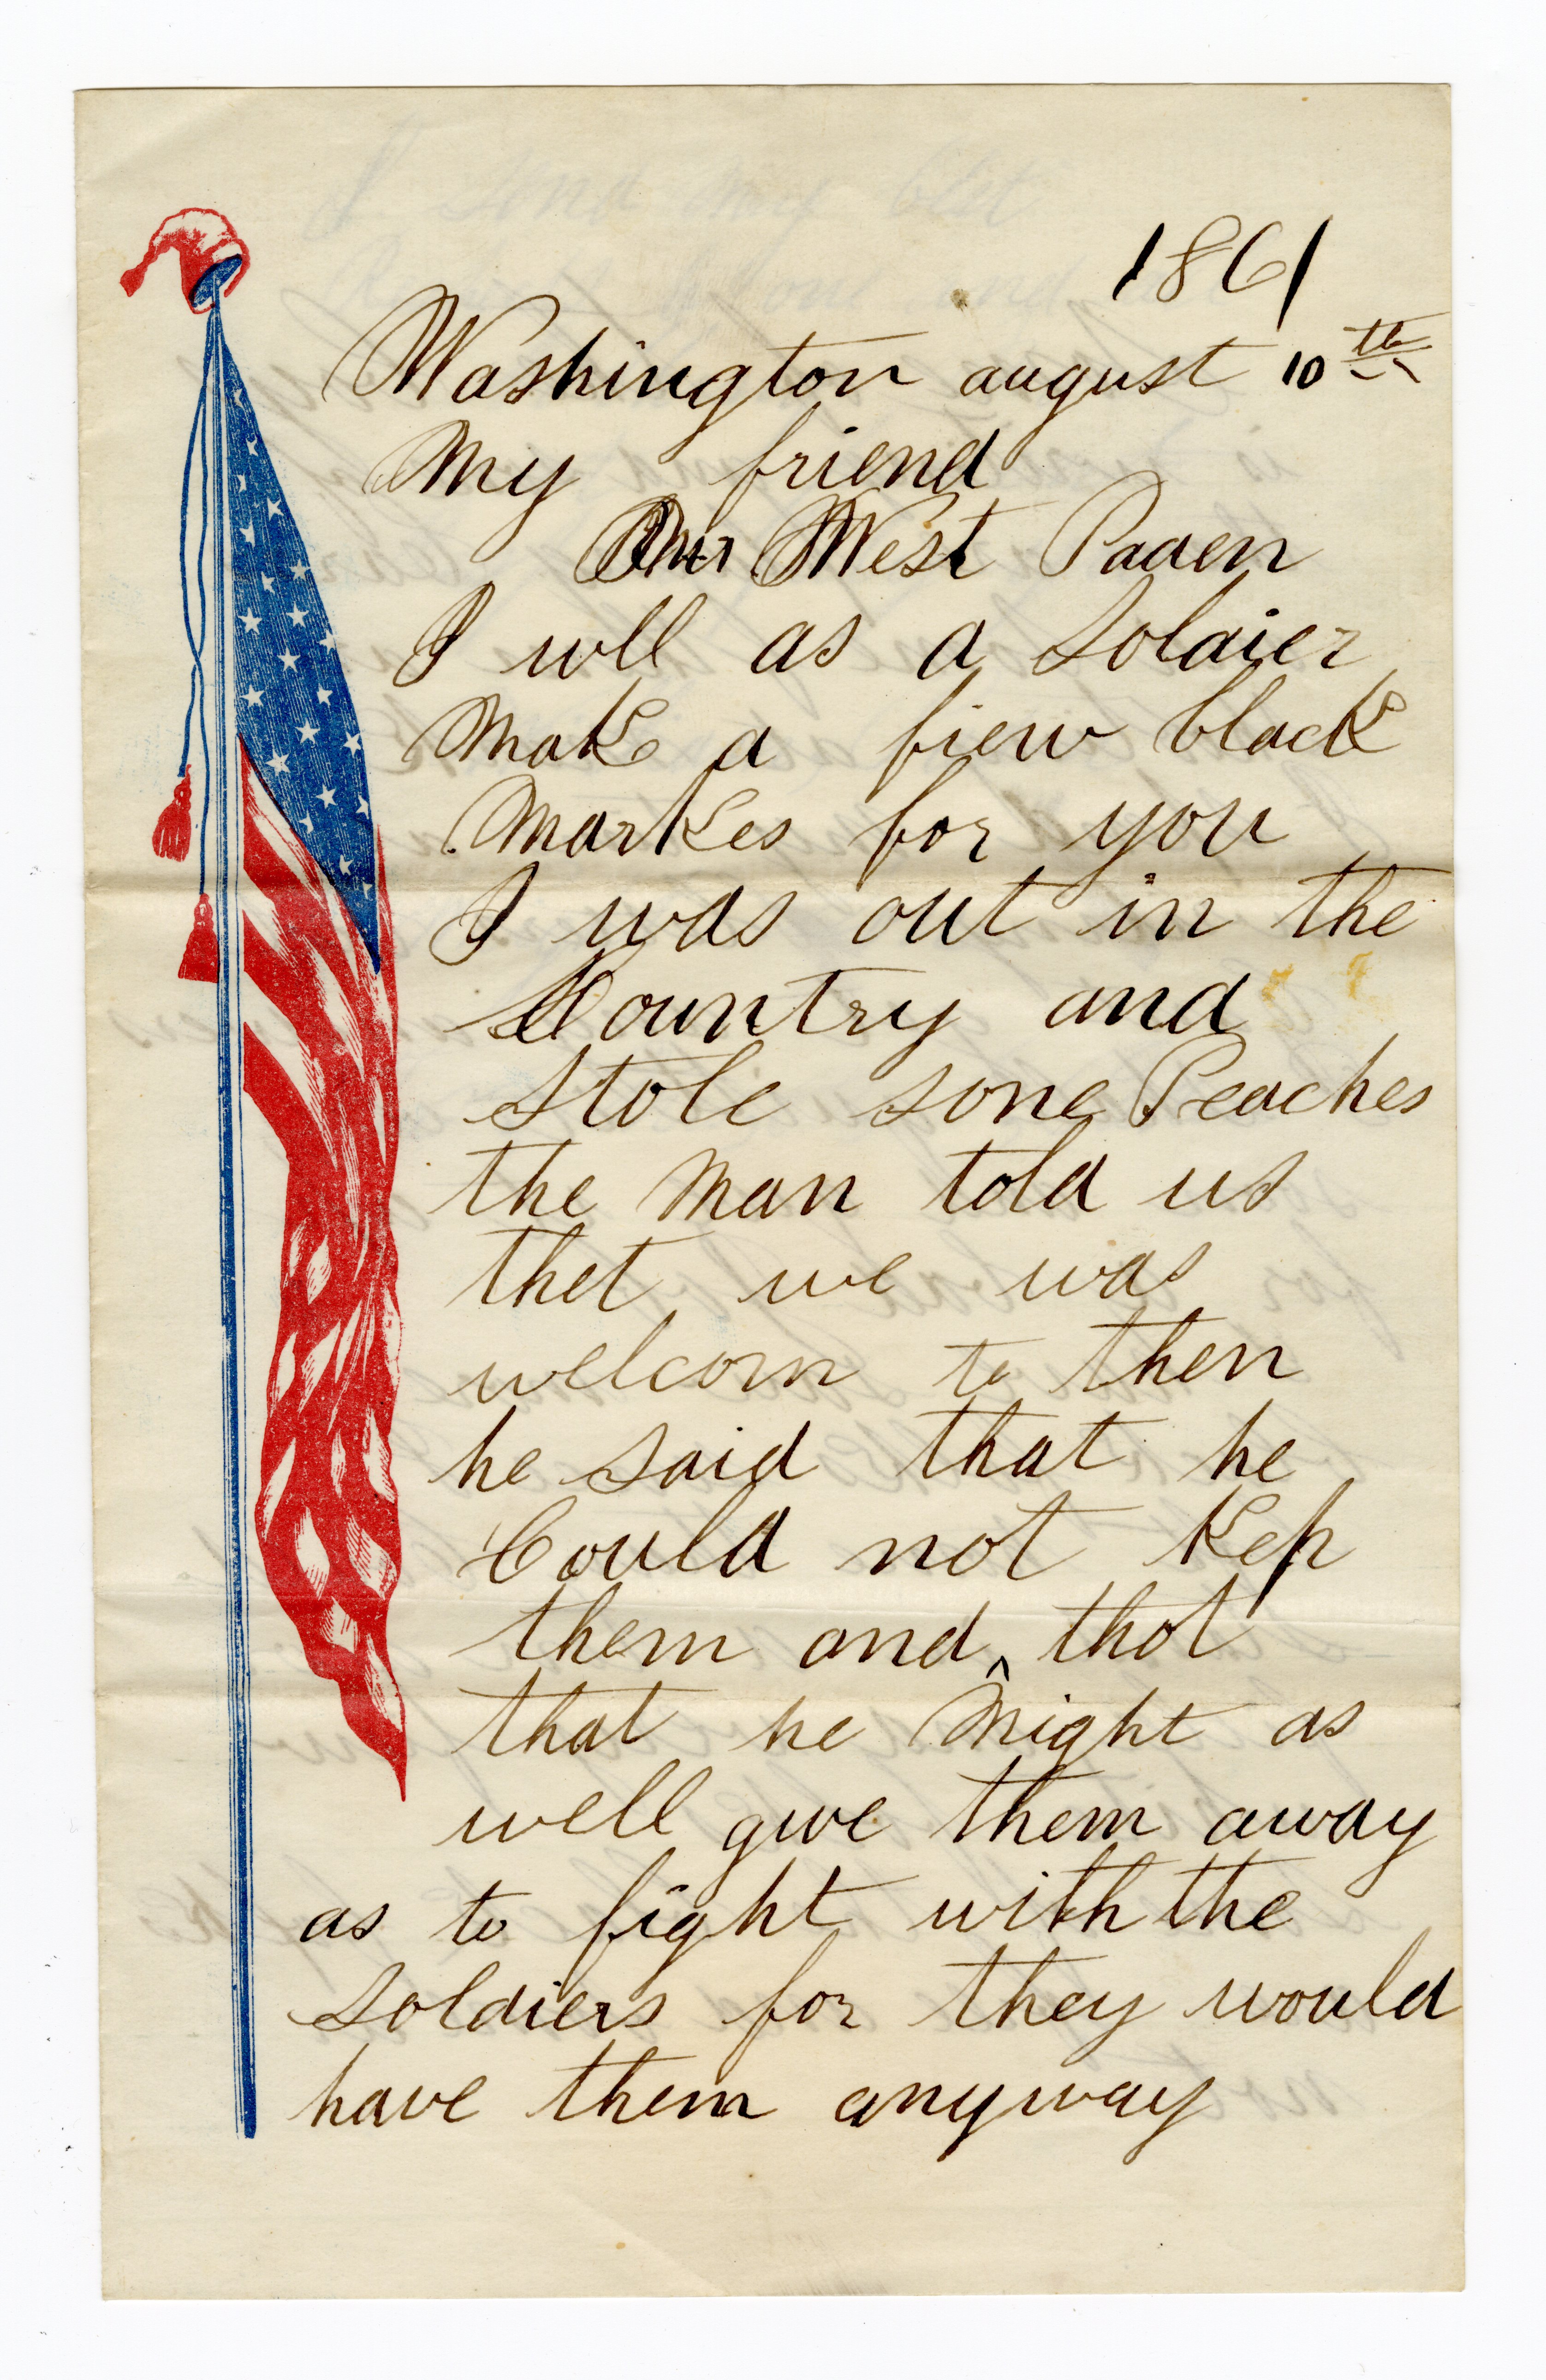 1861
Washington august 10th
My friend
West Paden
I wll as a Soldier
Make a fiew black
Markes for you
I was out in the
Country and
stole sone Peaches
the man told us
thet we was
welcom to then
he said that he
Could not Kep
them and ^ thot
that he Might as
well give them away
as to fight with the
soldiers for they would
have them anyway